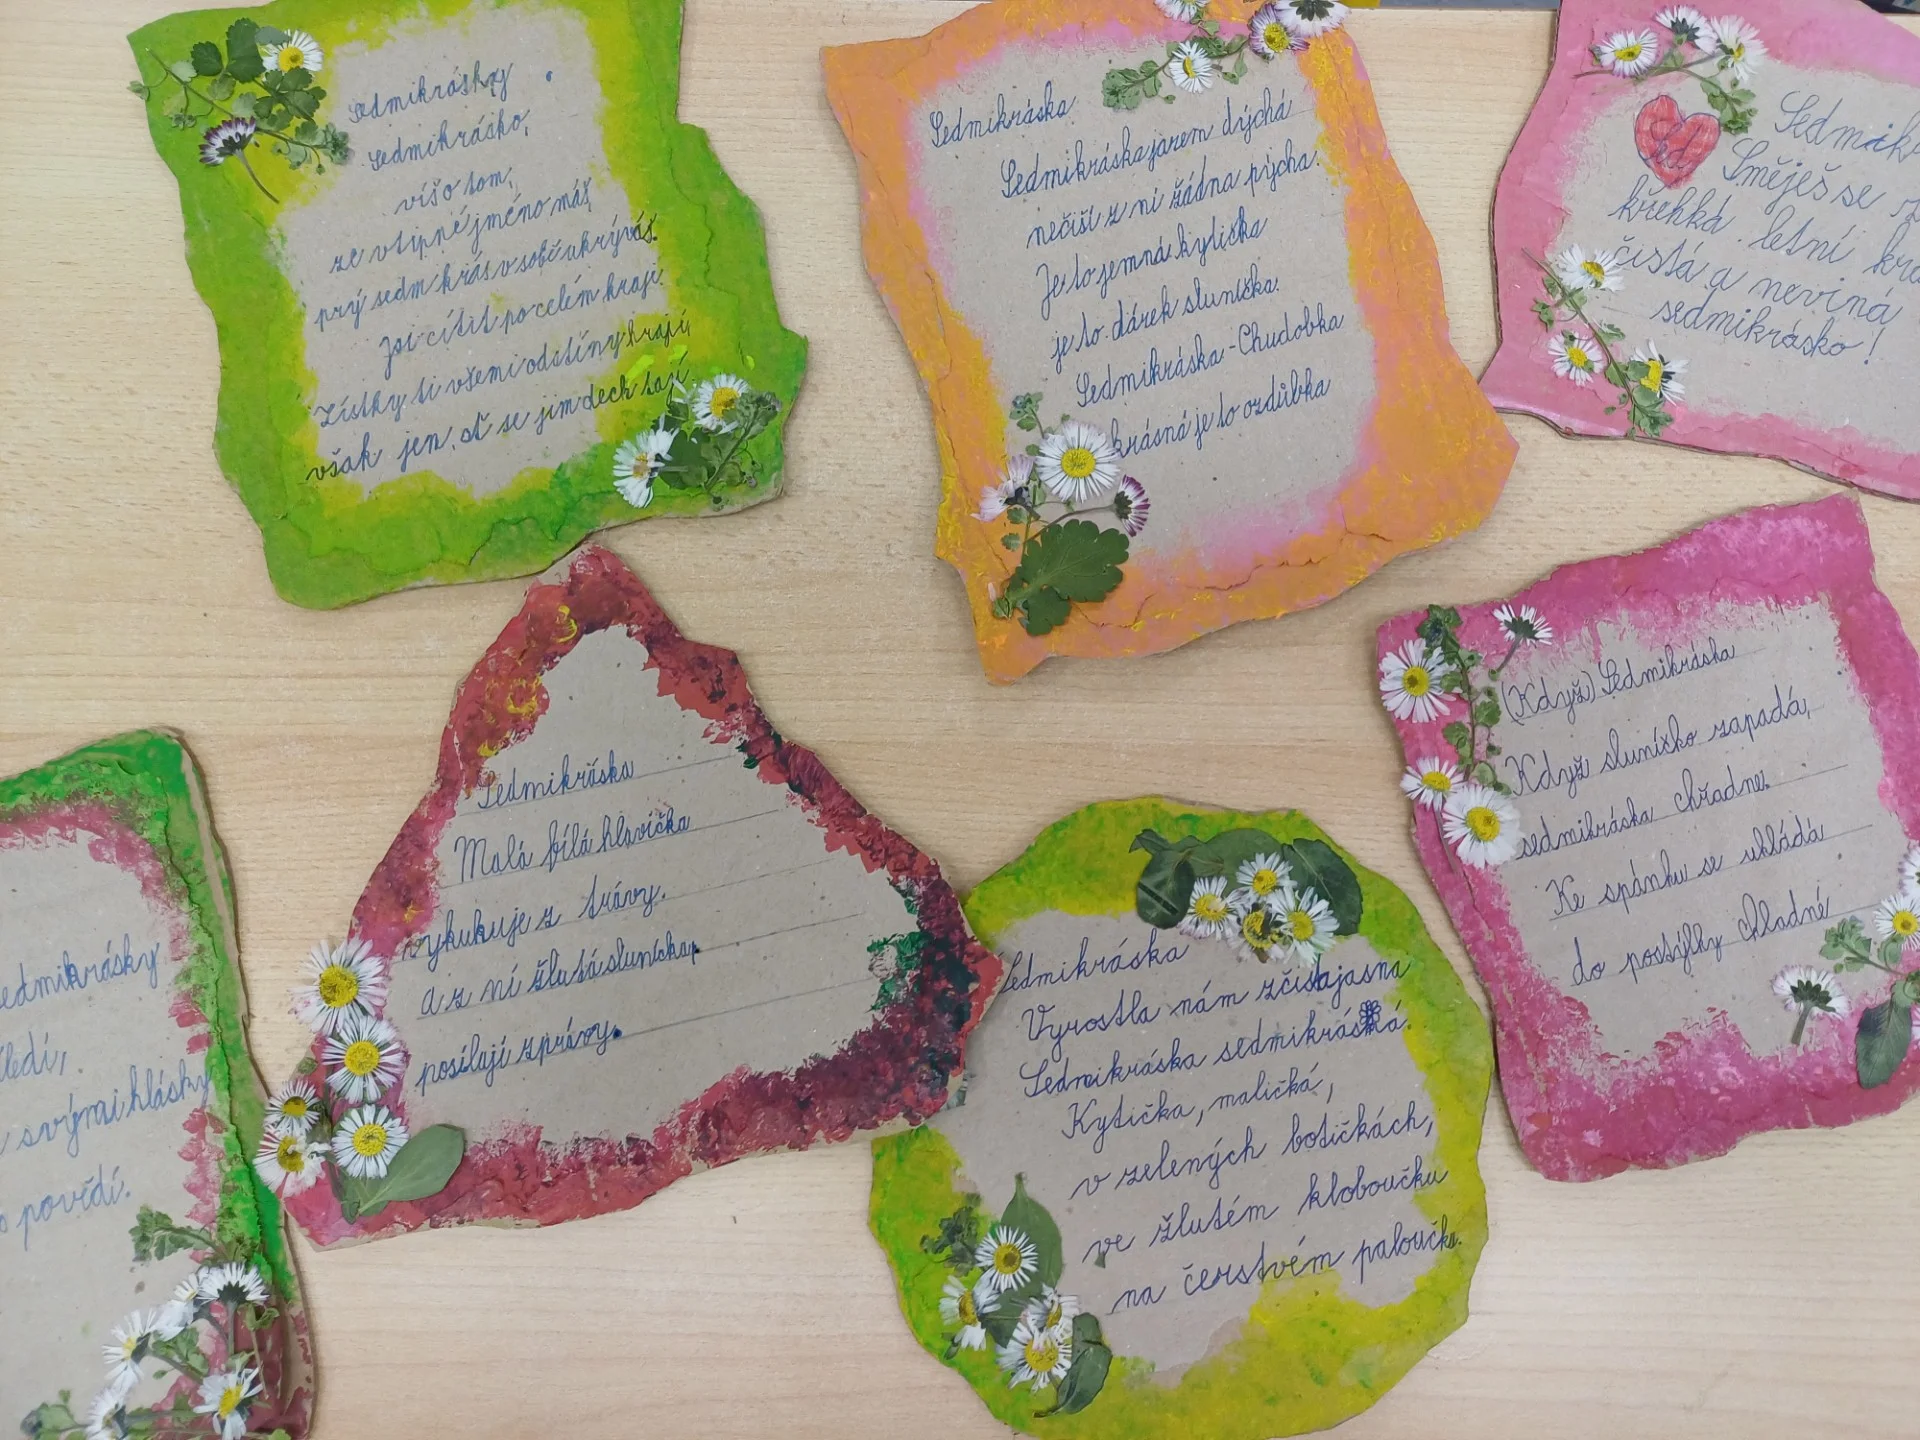 Sedmikrásky
Sedmikrásko,
víš o tom,
že vtipné jméno máš,
prý sedm krás v sobě ukrýváš.
Jsi cítit po celém kraji.
Lístky ti všemi odstíny hrají,
však jen, ať se jim dech tají
Sedmikráska
Sedmikráska jarem dýchá
nečiší z ní žádna pýcha.
Je to jemná kytička
je to dárek sluníčka.
Sedmikráska-Chudobka
krásná je to ozdůbka
Směješ se
křehká letní
čistá aneviná
sedmikrásko!
Sedmikráska
Malá bílá hlavička
vykukuje z trávy.
a z ní žlutá slunička
posílají zprávy.
(Když) Sedmikráska
Když sluníčko zapadá,
sedmikráska chřadne.
Ke spánku se ukládá
do postýlky chladné
sedmikrásky
svými hlásky
povědí.
Sedmikráska
Vyrostla nám zčistajasna
Sedmikráska sedmikrásná.
Kytička, maličká,
v zelených botičkách,
ve žlutém kloboučku
na čerstvém paloučku.